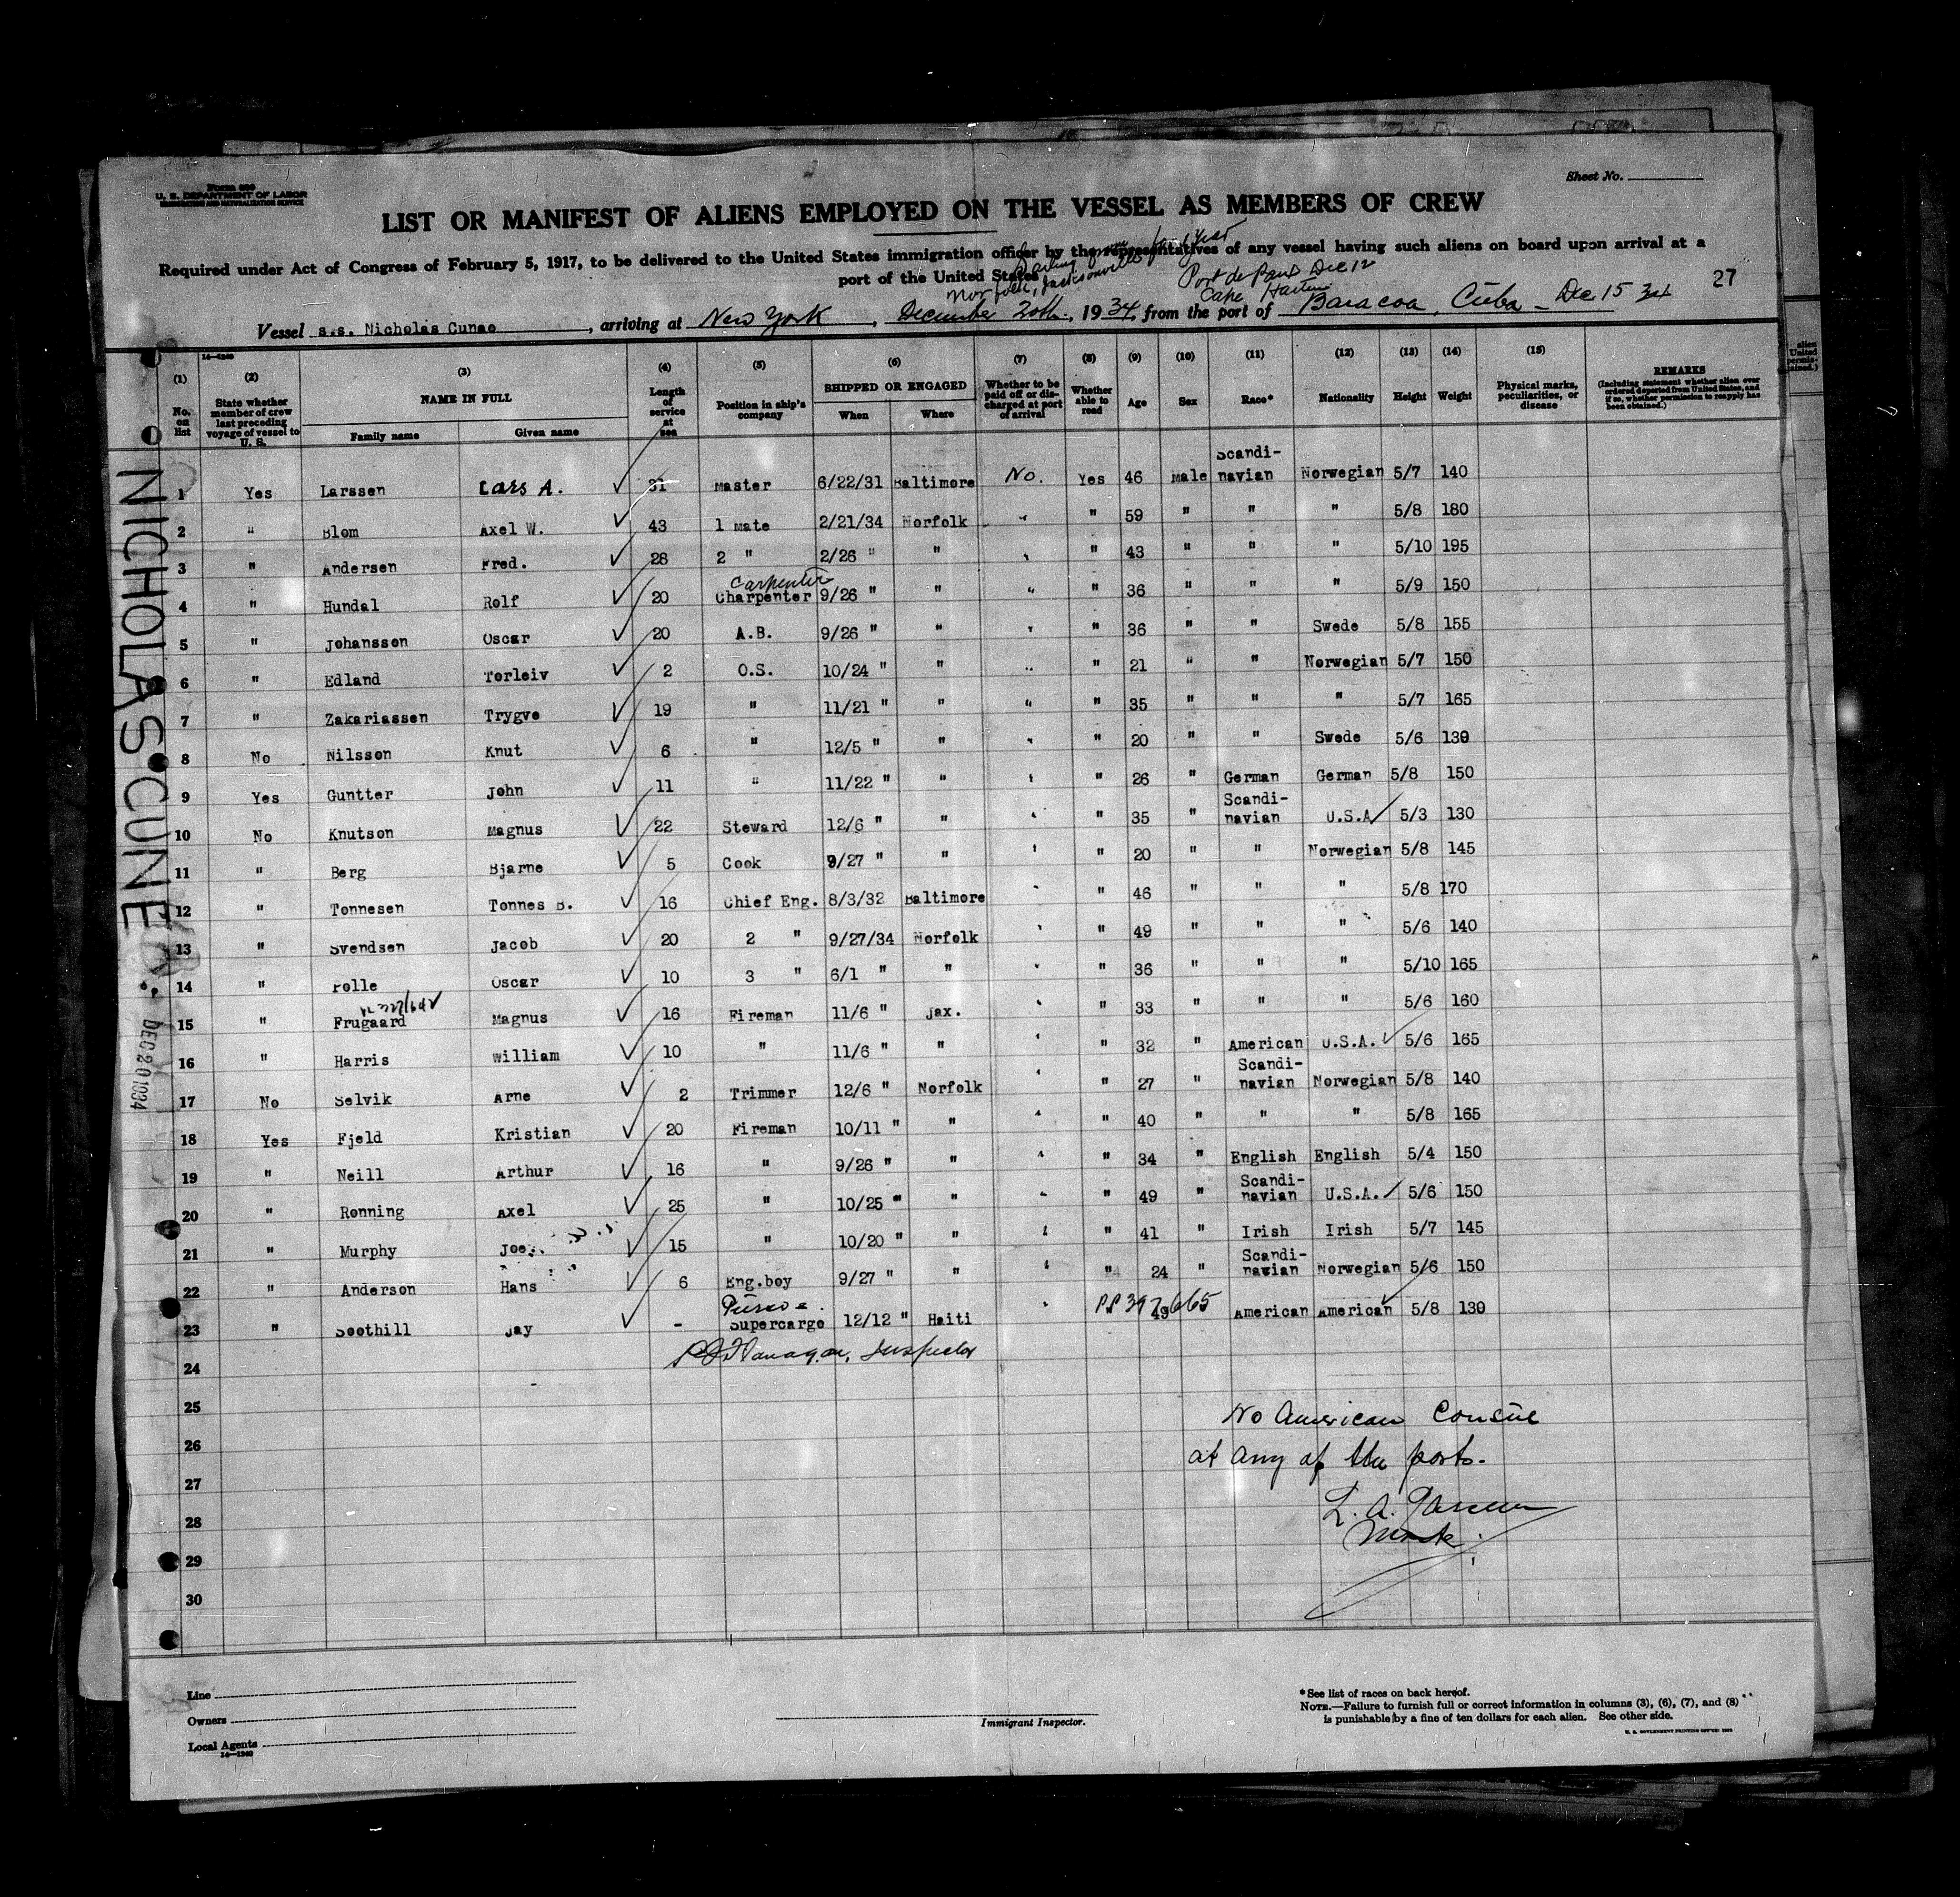 Form 680
U. S. DEPARTMENT OF LABOR
IMMIGRATION AND NATURALIZATION SERVICE
Sheet No.
LIST OR MANIFEST OF ALIENS EMPLOYED ON THE VESSEL AS MEMBERS OF CREW
Required under Act of Congress of February 5, 1917, to be delivered to the United States immigration officer by the representatives of any vessel having such aliens on board upon arrival at a
port of the United States
Norfolk, Jacksonville
Port de Paix Dec 12
Cape Haitien
27
Vessel s.s. Nicholas Cuneo, arriving at New York, December 20th, 1934, from the port of Baracoa, Cuba - Dec 15 34
14-1240
(1) (2) (3) (4) (5) (6) (7) (8) (9) (10) (11) (12) (13) (14) (15)
No. on list
State whether member of crew last preceding voyage of vessel to U. S.
NAME IN FULL
Family name Given name
Length of service at sea
Position in ship's company
SHIPPED OR ENGAGED
When Where
Whether to be paid off or discharged at port of arrival
Whether able to read
Age Sex Race* Nationality Height Weight
Physical marks, peculiarities, or disease
REMARKS
(Including statement whether alien ever ordered deported from United States, and if so, whether permission to reapply has been obtained.)
NICHOLAS CUNEO
DEC 20 1934
1 Yes Larssen Lars A. 31 Master 6/22/31 Baltimore No. Yes 46 Male Scandi-navian Norwegian 5/7 140
2 " Blom Axel W. 43 1 Mate 2/21/34 Norfolk " " 59 " " " 5/8 180
3 " Andersen Fred. 28 2 " 2/26 " " " " 43 " " " 5/10 195
Carpenter
4 " Hundal Rolf 20 Charpenter 9/26 " " " " 36 " " " 5/9 150
5 " Johansson Oscar 20 A.B. 9/26 " " " " 36 " " Swede 5/8 155
6 " Edland Torleiv 2 O.S. 10/24 " " " " 21 " " Norwegian 5/7 150
7 " Zakariassen Trygve 19 " 11/21 " " " " 35 " " " 5/7 165
8 No Nilsson Knut 6 " 12/5 " " " " 20 " " Swede 5/6 139
9 Yes Guntter John 11 " 11/22 " " " " 26 " German German 5/8 150
10 No Knutson Magnus 22 Steward 12/6 " " " " 35 " Scandi-navian U.S.A 5/3 130
11 " Berg Bjarne 5 Cook 9/27 " " " " 20 " " Norwegian 5/8 145
12 " Tonnesen Tonnes B. 16 Chief Eng. 8/3/32 Baltimore " " 46 " " " 5/8 170
13 " Svendsen Jacob 20 2 " 9/27/34 Norfolk " " 49 " " " 5/6 140
14 " Polle Oscar 10 3 " 6/1 " " " " 36 " " " 5/10 165
15 " Frugaard Magnus 16 Fireman 11/6 " Jax. " " 33 " " " 5/6 160
16 " Harris William 10 " 11/6 " " " " 32 " American U.S.A. 5/6 165
17 No Selvik Arne 2 Trimmer 12/6 " Norfolk " " 27 " Scandi-navian Norwegian 5/8 140
18 Yes Fjeld Kristian 20 Fireman 10/11 " " " " 40 " " " 5/8 165
19 " Neill Arthur 16 " 9/26 " " " " 34 " English English 5/4 150
20 " Ronning Axel 25 " 10/25 " " " " 49 " Scandi-navian U.S.A. 5/6 150
21 " Murphy Joe. 15 " 10/20 " " " " 41 " Irish Irish 5/7 145
22 " Anderson Hans 6 Eng.boy 9/27 " " " " 24 " Scandi-navian Norwegian 5/6 150
23 " Soothill Jay - Supercargo 12/12 " Haiti " 49 American American 5/8 139
24 Flanagan, Inspector
25 No American Consul
26 at any of the ports.
27
28 L. A. Larssen
29
30
Line
Owners
Local Agents
14-1240
Immigrant Inspector.
*See list of races on back hereof.
NOTE.—Failure to furnish full or correct information in columns (3), (6), (7), and (8)
is punishable by a fine of ten dollars for each alien. See other side.